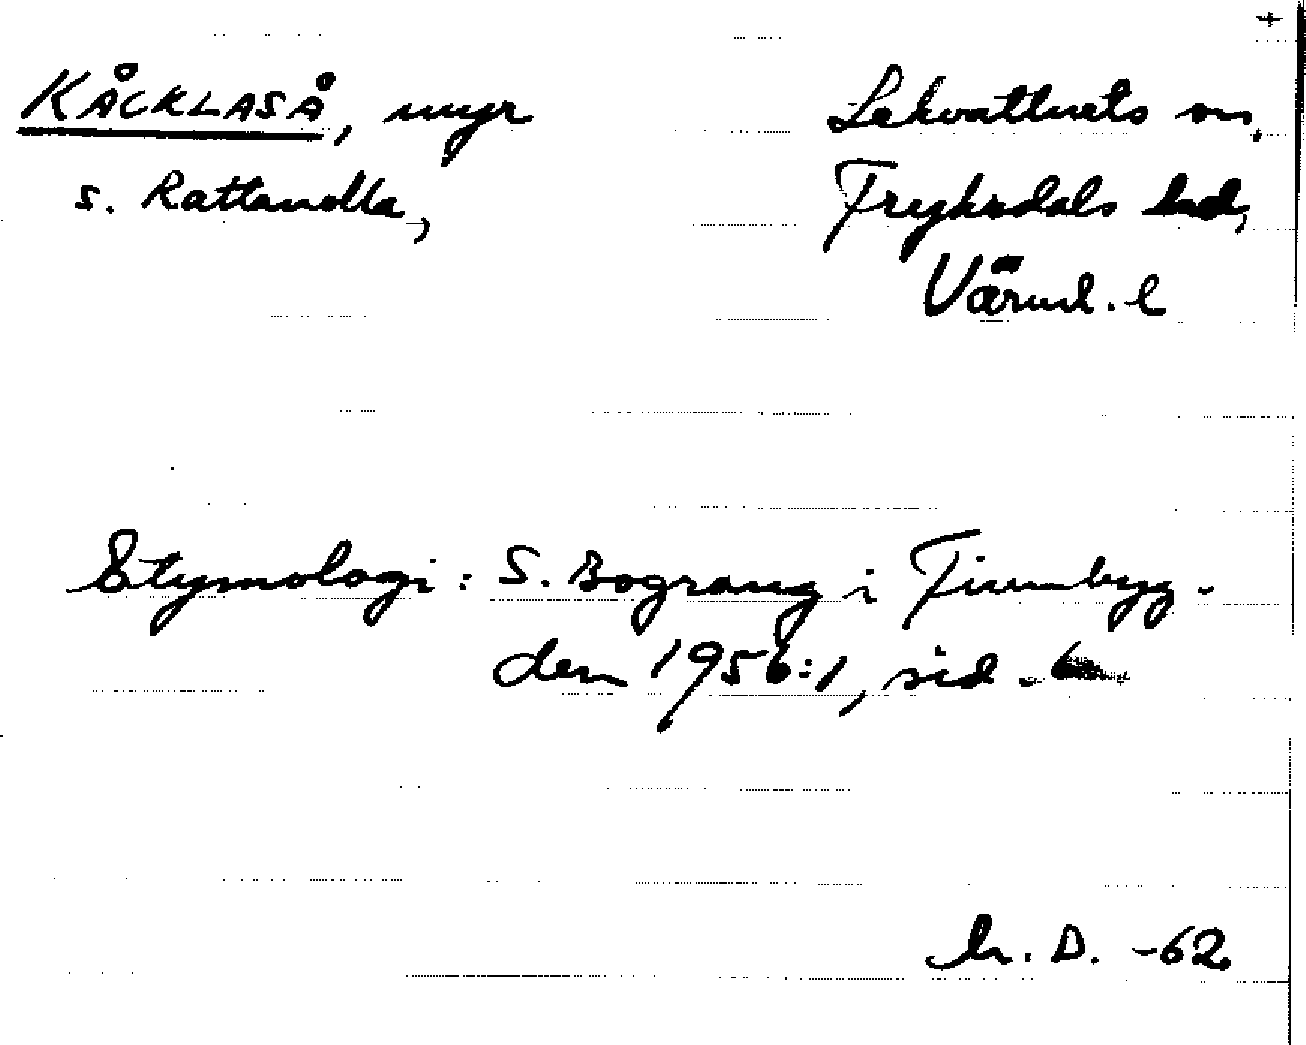 +
KÅCKLASÅ, myr
s. Rattanolla,
Lekvattnets sn,
Fryksdals hd,
Värml. l
Etymologi: S. Bograng i Finnbyg-
den 1956:1, sid. 6
D. -62